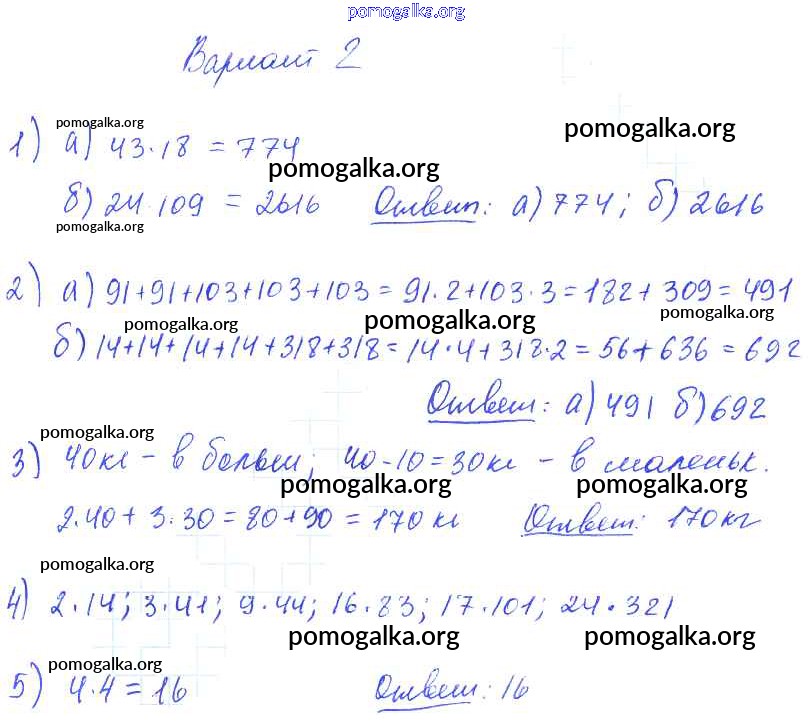 pomogalka.org
Вариант 2
pomogalka.org
pomogalka.org
1) а) 43·18 = 774
pomogalka.org
б) 24·109 = 2616 Ответ: а) 774; б) 2616
pomogalka.org
2) а) 91+91+103+103+103 = 91·2+103·3 = 182+309 = 491
pomogalka.org pomogalka.org pomogalka.org
б) 14+14+14+14+318+318 = 14·4+318·2 = 56+636 = 692
Ответ: а) 491 б) 692
pomogalka.org
3) 40кг - в больш; 40-10=30кг - в маленьк.
pomogalka.org pomogalka.org
2·40+3·30=80+90=170кг Ответ: 170кг
pomogalka.org
4) 2·14; 3·41; 9·44; 16·83; 17·101; 24·321
pomogalka.org pomogalka.org
pomogalka.org
5) 4·4=16 Ответ: 16